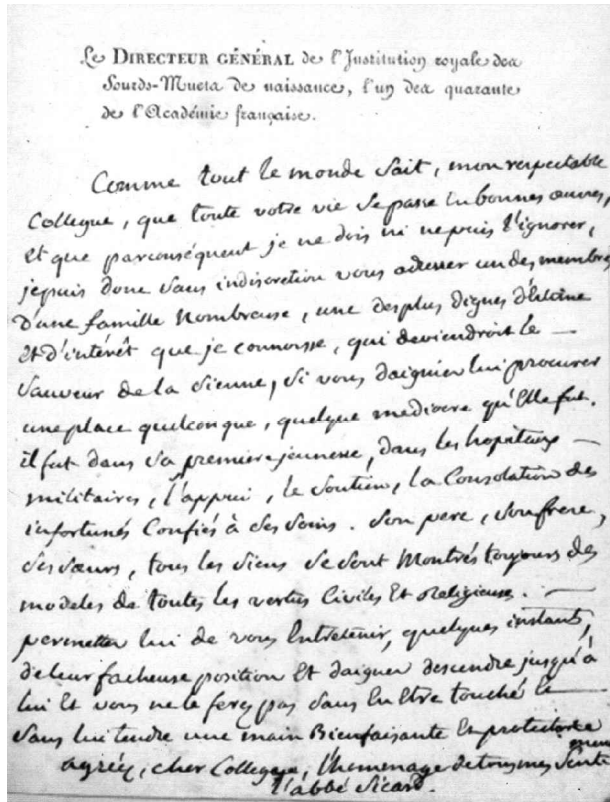 Le DIRECTEUR GÉNÉRAL de l'Institution royale des
Sourds-Muets de naissance, l'un des quarante
de l'Académie française.
Comme tout le monde sait, mon respectable
Collegue, que toute votre vie se passe en bonnes œuvres,
et que parconséquent je ne dois ni ne puis l'ignorer,
je puis donc sans indiscretion vous adresser un des membres
d'une famille nombreuse, une des plus dignes d'Estime
et d'intérêt que je connoisse, qui deviendroit le —
Sauveur de la Sienne, Si vous daigniez lui procurer
une place quelconque, quelque mediocre qu'Elle fut.
il fut dans sa premiere jeunesse, dans les hopitaux —
militaires, l'appui, le Soutien, la Consolation des
infortunés Confiés à Ses Soins. Son pere, Son frere,
Ses Sœurs, tous les Siens Se Sont Montrés toujours des
modeles de toutes les vertus Civiles Et Religieuses. —
permettez lui de vous Entretenir, quelques instants,
de leur facheuse position Et daignez descendre jusqu'à
lui Et vous ne le ferez pas Sans En Etre touché Et —
Sans lui tendre une main Bienfaisante Et protectrice
agréez, cher Collegue, l'hommage de tous mes Sentimens
l'abbé Sicard.